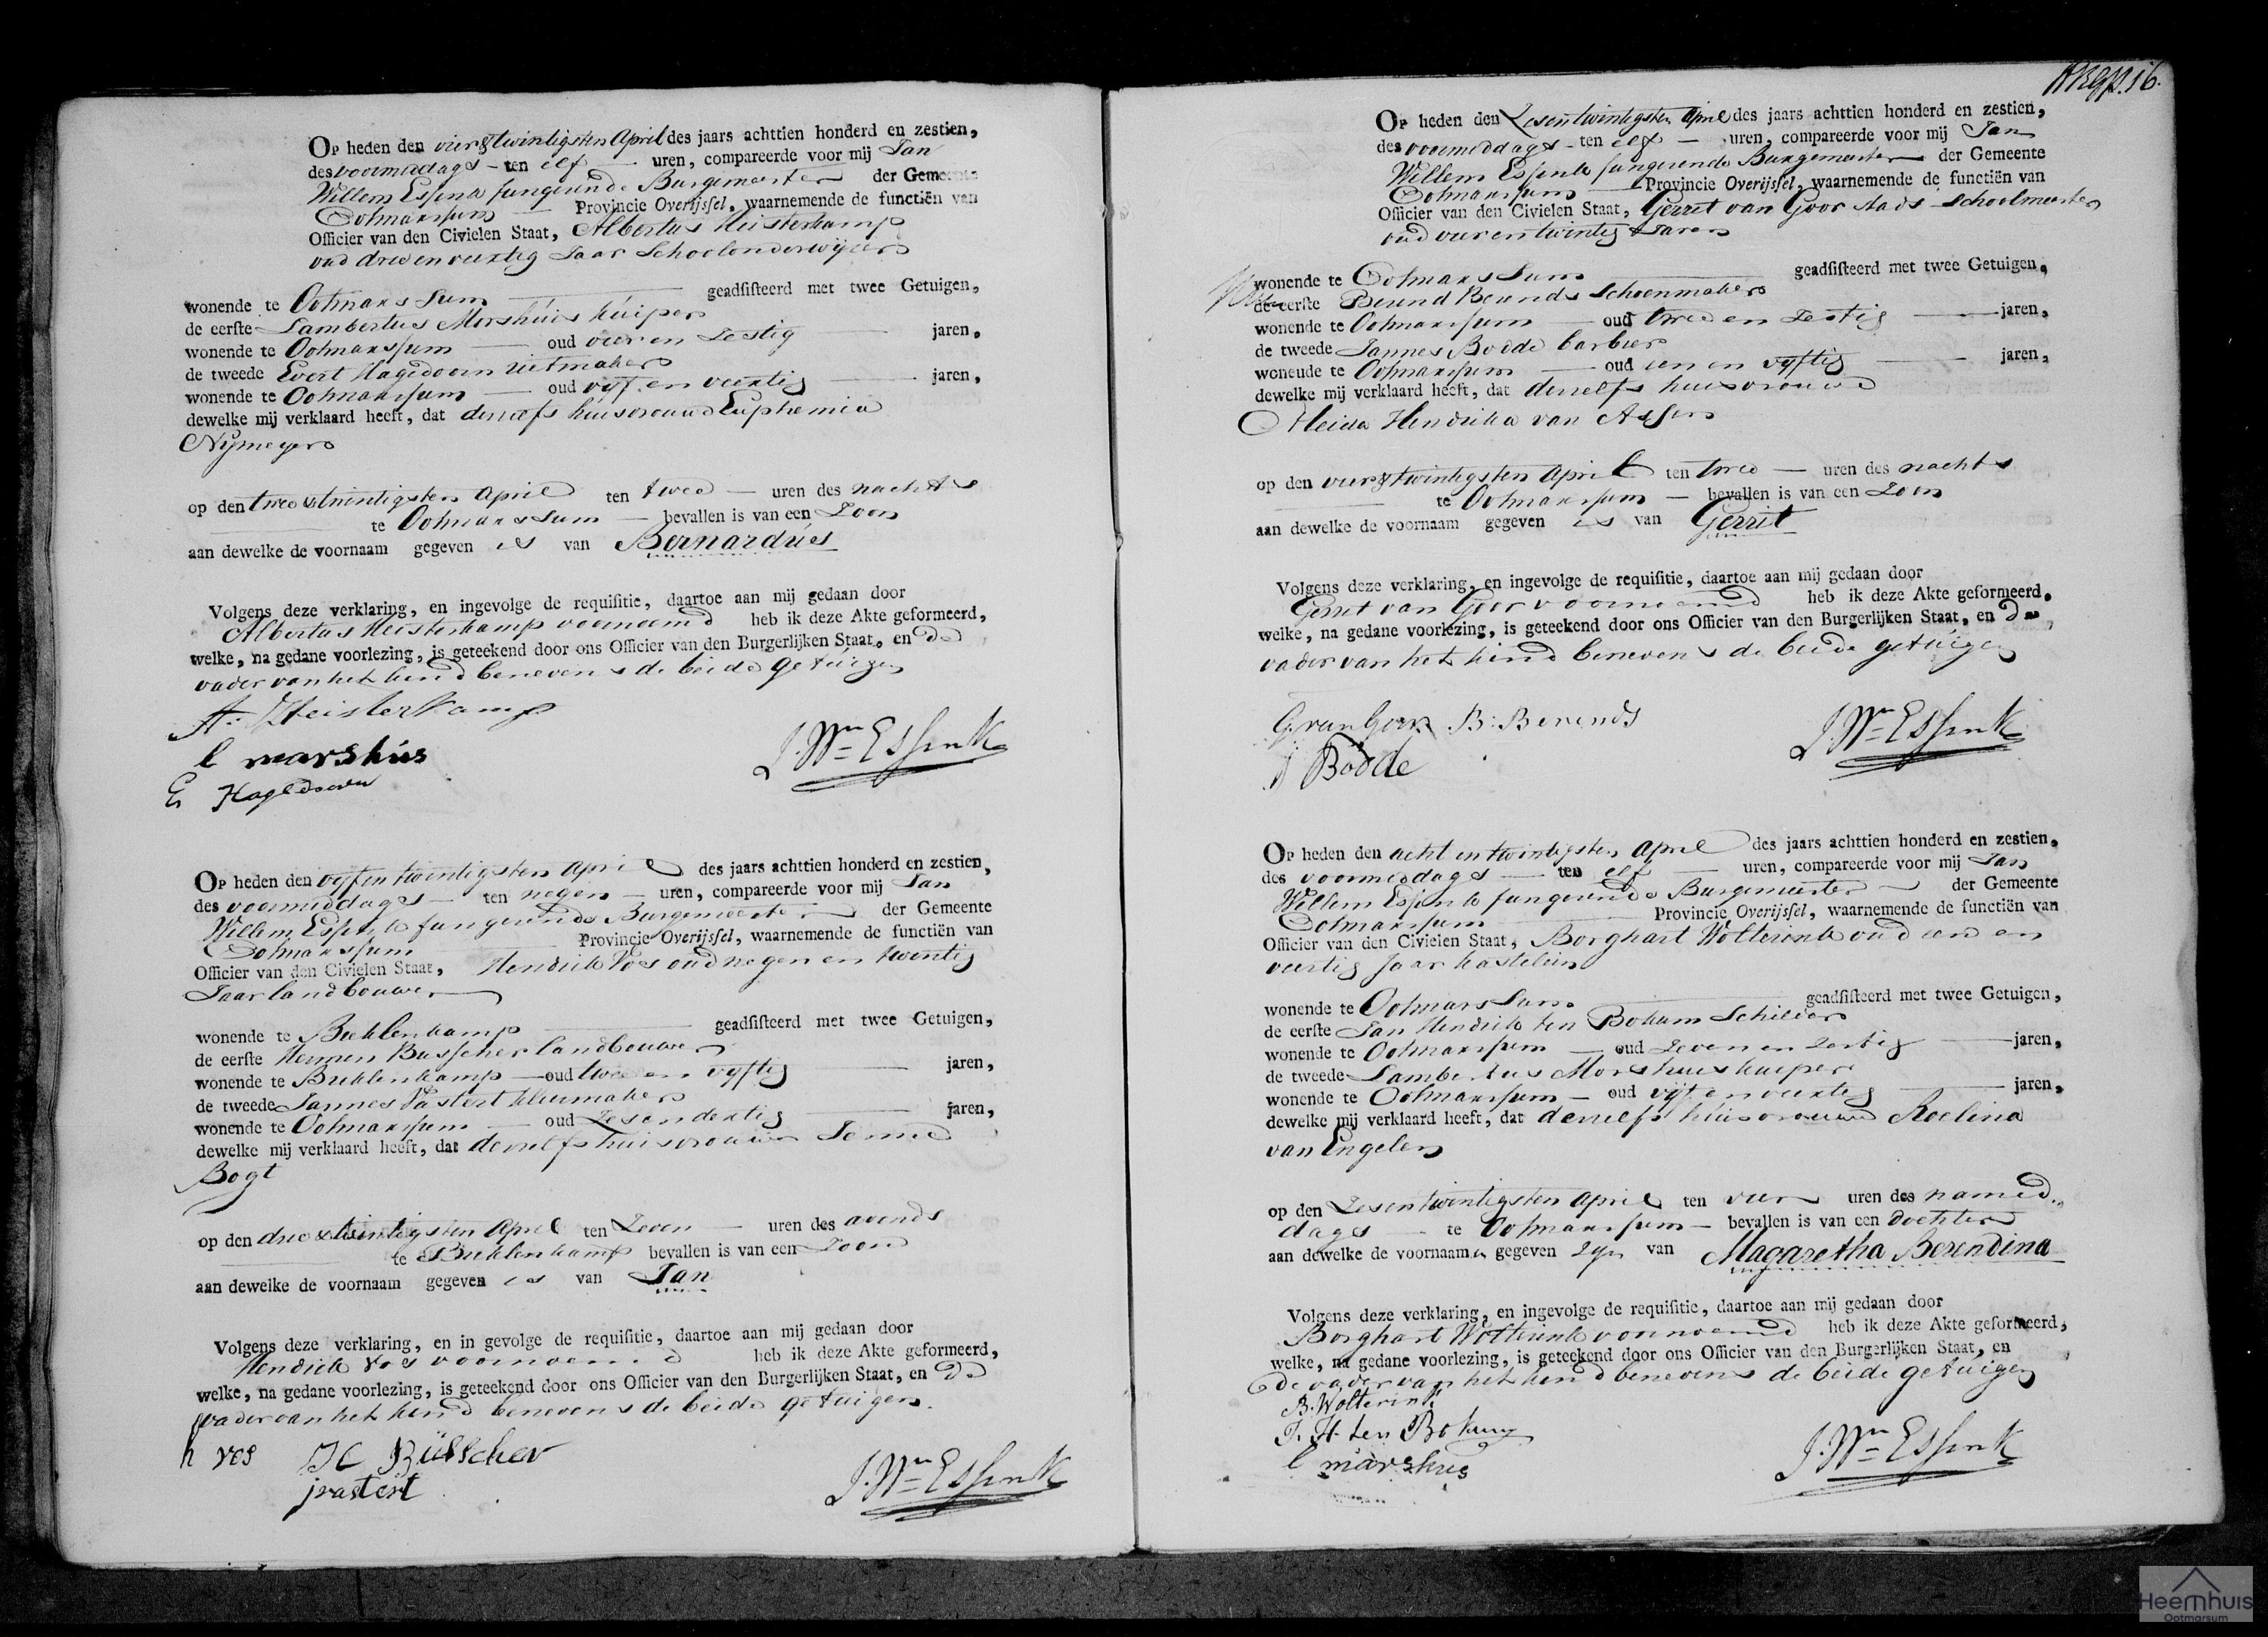 Op heden den vier & twintigsten April des jaars achttien honderd en zestien,
des voormiddags - ten elf - uren, compareerde voor mij Jan
Willem Essink fungerende Burgemeester der Gemeente
Ootmarssum Provincie Overijssel, waarnemende de functiën van
Officier van den Civielen Staat, Albertus Heisterkamp
oud drie en veertig Jaar Schoolonderwijzer
wonende te Ootmarssum geadsisteerd met twee Getuigen,
de eerste Lambertus Morshuis kuiper
wonende te Ootmarssum oud vier en Zestig jaren,
de tweede Evert Hagedoorn
wonende te Ootmarssum oud vyf en veertig jaren,
dewelke mij verklaard heeft, dat deszelfs huisvrouw Euphemia
Nijmeyer
op den twee & twintigsten April ten twee - uren des nachts
te Ootmarssum - bevallen is van een Zoon
aan dewelke de voornaam gegeven is van Bernardus
Volgens deze verklaring, en ingevolge de requisitie, daartoe aan mij gedaan door
Albertus Heisterkamp voornoemd heb ik deze Akte geformeerd,
welke, na gedane voorlezing, is geteekend door ons Officier van den Burgerlijken Staat, en de
vader van het kind benevens de beide getuigen
A: Heisterkamp
l marshus
E Hagedoorn
J. Wm Essink
Op heden den vyf en twintigsten April des jaars achttien honderd en zestien,
des voormiddags - ten negen - uren, compareerde voor mij Jan
Willem Essink fungerende Burgemeester der Gemeente
Ootmarssum Provincie Overijssel, waarnemende de functiën van
Officier van den Civielen Staat, Hendrik Vos oud negen en twintig
Jaar landbouwer
wonende te Breklenkamp geadsisteerd met twee Getuigen,
de eerste Hermen Busscher landbouwer
wonende te Breklenkamp oud twee en vyftig jaren,
de tweede Jannes Pastert kleermaker
wonende te Ootmarssum oud Zes en dertig jaren,
dewelke mij verklaard heeft, dat deszelfs huisvrouw
Bogt
op den drie & twintigsten April ten Zeven - uren des avonds
te Breklenkamp bevallen is van een Zoon
aan dewelke de voornaam gegeven is van Jan
Volgens deze verklaring, en in gevolge de requisitie, daartoe aan mij gedaan door
Hendrik Vos voornoemd heb ik deze Akte geformeerd,
welke, na gedane voorlezing, is geteekend door ons Officier van den Burgerlijken Staat, en de
vader van het kind benevens de beide getuigen.
h vos H Büsscher
J. Wm Essink
16.
Op heden den Zesentwintigsten April des jaars achttien honderd en zestien,
des voormiddags - ten elf - uren, compareerde voor mij Jan
Willem Essink fungerende Burgemeester der Gemeente
Ootmarssum Provincie Overijssel, waarnemende de functiën van
Officier van den Civielen Staat, Gerret van Goor Stads Schoolmeester
oud vier en twintig Jaren
wonende te Ootmarssum geadsisteerd met twee Getuigen,
de eerste Berend Berends Schoenmaker
wonende te Ootmarssum oud twee en Zestig jaren,
de tweede Jannes Bodde barbier
wonende te Ootmarssum oud een en vyftig jaren,
dewelke mij verklaard heeft, dat deszelfs huisvrouw
Aleida Hendrika van Assen
op den vier & twintigsten April ten twee - uren des nachts
te Ootmarssum - bevallen is van een Zoon
aan dewelke de voornaam gegeven is van Gerrit
Volgens deze verklaring, en ingevolge de requisitie, daartoe aan mij gedaan door
Gerret van Goor voornoemd heb ik deze Akte geformeerd,
welke, na gedane voorlezing, is geteekend door ons Officier van den Burgerlijken Staat, en de
vader van het kind benevens de beide getuigen
G van Goor B: Berends
J Bodde
J. Wm Essink
Op heden den acht en twintigsten April des jaars achttien honderd en zestien,
des voormiddags - ten elf uren, compareerde voor mij Jan
Willem Essink fungerende Burgemeester der Gemeente
Ootmarssum Provincie Overijssel, waarnemende de functiën van
Officier van den Civielen Staat, Borghart Wolterink oud een en
veertig Jaar kastelein
wonende te Ootmarssum geadsisteerd met twee Getuigen,
de eerste Jan Hendrik ten Bokum Schilder
wonende te Ootmarssum oud Zeven en dertig jaren,
de tweede Lambertus Morshuis kuiper
wonende te Ootmarssum - oud vijf en veertig jaren,
dewelke mij verklaard heeft, dat deszelfs huisvrouw Roelina
van Engelen
op den Zesentwintigsten April ten vier uren des namid-
dags te Ootmarssum - bevallen is van een dochter
aan dewelke de voornaam en gegeven zijn van Magaretha Berendina
Volgens deze verklaring, en ingevolge de requisitie, daartoe aan mij gedaan door
Borghart Wolterink voornoemd heb ik deze Akte geformeerd,
welke, na gedane voorlezing, is geteekend door ons Officier van den Burgerlijken Staat, en
de vader van het kind benevens de beide getuigen
B. Wolterink
J. H ten Bokum
l marshus
J. Wm Essink
Heemhuis
Ootmarsum